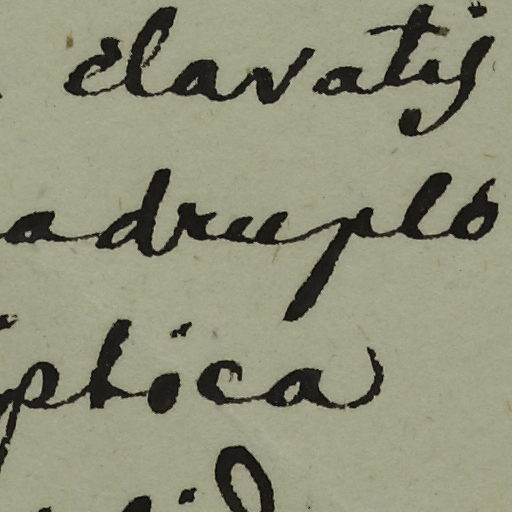 clavatis
adruplo
iptica